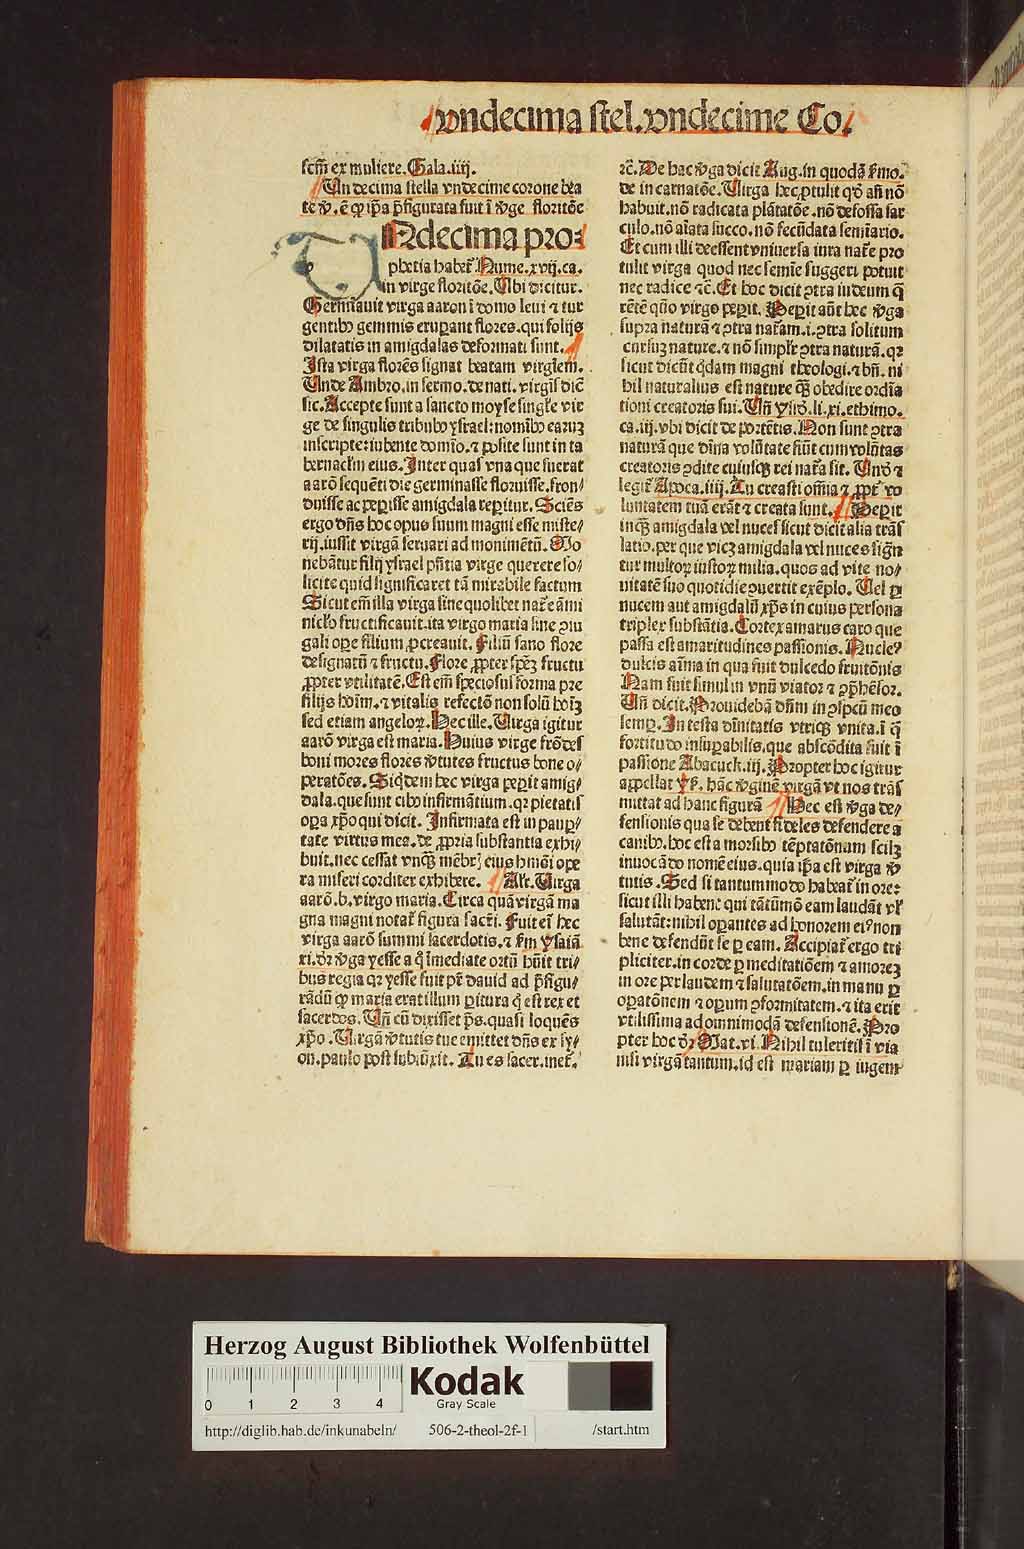 vndecima stel. vndecime Co.
scm̄ ex muliere. Gala. iiij.
Un decima stella vndecime corone bea
te v̄. ē ꝙ ip̄a p̄figurata fuit ī v̄ge floritōe
Ndecima pro:
phetia habet̄ Nume. xvij. ca.
in virge floritōe. Ubi dicitur.
Germīauit virga aaron ī domo leui ⁊ tur
gentibꝰ gemmis eruꝑant flores. qui folijs
dilatatis in amigdalas deformati sunt.
Ista virga florēs signat beatam virgīem.
Unde Ambro. in sermo. de nati. virgīs diē
sic. Accepte sunt a sancto moyse singl̄e vir
ge de singulis tribubꝰ ysrael: nomībꝰ earuꝫ
inscripte: iubente domīo. ⁊ posite sunt in ta
bernacl̄m eius. Inter quas vna que fuerat
aarō sequēti die germinasse floruisse. fron/
duisse ac peꝑisse amigdala reꝑitur. Sciēs
ergo dn̄s hoc opus suum magni esse miste/
rij. iussit virgā seruari ad monimētū. Mo
nebātur filij ysrael pn̄tia virge querere so/
licite quid significaret tā mirabile factum
Sicut em̄ illa virga sine quolibet nat̄e āmi
nicl̄o fructificauit. ita virgo maria sine ꝯiu
gali oꝑe filium ꝓcreauit. Filiū sano flore
designatū ⁊ fructu. Flore ꝓpter spēꝫ fructu
ꝓpter vtilitatē. Est em̄ speciosus forma pre
filijs hoīm. ⁊ vitalis refectōn non solū hoīꝫ
sed etiam angeloꝝ. Hec ille. Uirga igitur
aarō virga est maria. Huius virge frōdes
boni mores flores v̄tutes fructus bone o/
peratōes. Siq̄dem hec virga peꝑit amig/
dala. que sunt cibꝰ infirmātium. qꝛ pietatis
oꝑa xp̄o qui dicit. Infirmata est in pauꝑ/
tate virtus mea. de ꝓpria substantia exhi/
buit. nec cessat vnq̄ꝫ mēbrꝭ eius hmōi ope
ra misericorditer exhibere. Alr̄. Uirga
aarō. b. virgo maria. Circa quā virgā ma
gna magni notat̄ figura sacr̄i. Fuit ei hec
virga aarō summi sacerdotis. ⁊ fm̄ ysaiā
xi. dr̄ v̄ga yesse a q̄ īmediate ortū hūit tri/
bus regia qꝛ yesse fuit pr̄ dauid ad p̄figu/
rādū ꝙ maria erat illum ꝑitura q̄ est rex et
sacerdos. Un̄ cū dixisset p̄s. quasi loquēs
xp̄o. Uirgā v̄tutis tue emittet dn̄s ex sy/
on. paulo post subiūxit. Tu es sacer. inet̄.
⁊c̄. De hac v̄ga dicit Aug. in quodā s̄mo.
de incarnatōe. Uirga hec ꝓtulit qḋ an̄ nō
habuit. nō radicata plātatōe. nō defossa sar
culo. nō aīata succo. nō fecūdata semīario.
Et cum illi deessent vniuersa iura nat̄e pro
tulit virga quod nec semīe suggeri potuit
nec radice ⁊c̄. Et hoc dicit ꝯtra iudeum q̄
rētē quō virgo peꝑit. Peꝑit aūt hec v̄ga
supra naturā ⁊ ꝯtra nat̄am. i. ꝯtra solitum
cursuꝫ nature. ⁊ nō simplr̄ ꝯtra naturā. qꝛ
sicut dicūt q̄dam magni theologi. ⁊ bn̄. ni
hil naturalius est nature q̄ꝫ obedire ordīa
tioni creatoris sui. Un̄ ysid̄. li. xi. ethimo.
ca. iij. vbi dicit de portētis. Non sunt ꝯtra
naturā que dīna volūtate fiūt cum volūtas
creatoris ꝯdite cuiusqꝫ rei nat̄a sit. Un̄ ⁊
legit̄ Apoca. iiij. Tu creasti om̄ia ⁊ ꝓpt̄ vo
luntatem tuā erāt ⁊ creata sunt. Peꝑit
inq̄ꝫ amigdala vel nuces sicut dicit alia trās
latio. per que vicꝫ amigdala vel nuces sign̄
tur multoꝝ iustoꝝ milia. quos ad vite no/
uitatē suo quotidie ꝯuertit exēplo. Uel ꝑ
nucem aut amigdalū xp̄s in cuius persona
triplex substātia. Cortex amarus caro que
passa est amaritudines passionis. Nucleꝰ
dulcis aīma in qua fuit dulcedo fruitōnis
Nam fuit simul in vnū viator ⁊ ꝯp̄hēsor.
Un̄ dicit. Prouidebā dn̄m in ꝯspcū meo
semꝑ. In testa dīnitatis vtriqꝫ vnita. ī q̄
fortitudo insuꝑabilis. que abscōdita fuit ī
passione Abacuck. iij. Propter hoc igitur
appellat hāc v̄ginē virgā vt nos trās
mittat ad hanc figurā Hec est v̄ga de/
fensionis qua se debent fideles defendere a
canibꝰ. hoc est a morsibꝰ tēptatōnum scilꝫ
inuocādo nomē eius. quia ip̄a est virga v̄
tutis. Sed si tantummodo habeat̄ in ore:
sicut illi habent qui tātūmō eam laudāt vl̄
salutāt: nihil oꝑantes ad honorem eiꝰ non
bene defendūt se ꝑ eam. Accipiat̄ ergo tri
pliciter. in corde ꝑ meditatiōem ⁊ amoreꝫ
in ore per laudem ⁊ salutatōem. in manu ꝑ
oꝑatōnem ⁊ oꝑum ꝯformitatem. ⁊ ita erit
vtilissima ad omnimodā defensionē. Pro
pter hoc dr̄ Mat. vi. Nihil tuleritis ī via
nisi virgā tantum. id est mariam ꝑ iugem
Herzog August Bibliothek Wolfenbüttel
0 1 2 3 4
Kodak
Gray Scale
http://diglib.hab.de/inkunabeln/ 506-2-theol-2f-1 /start.htm